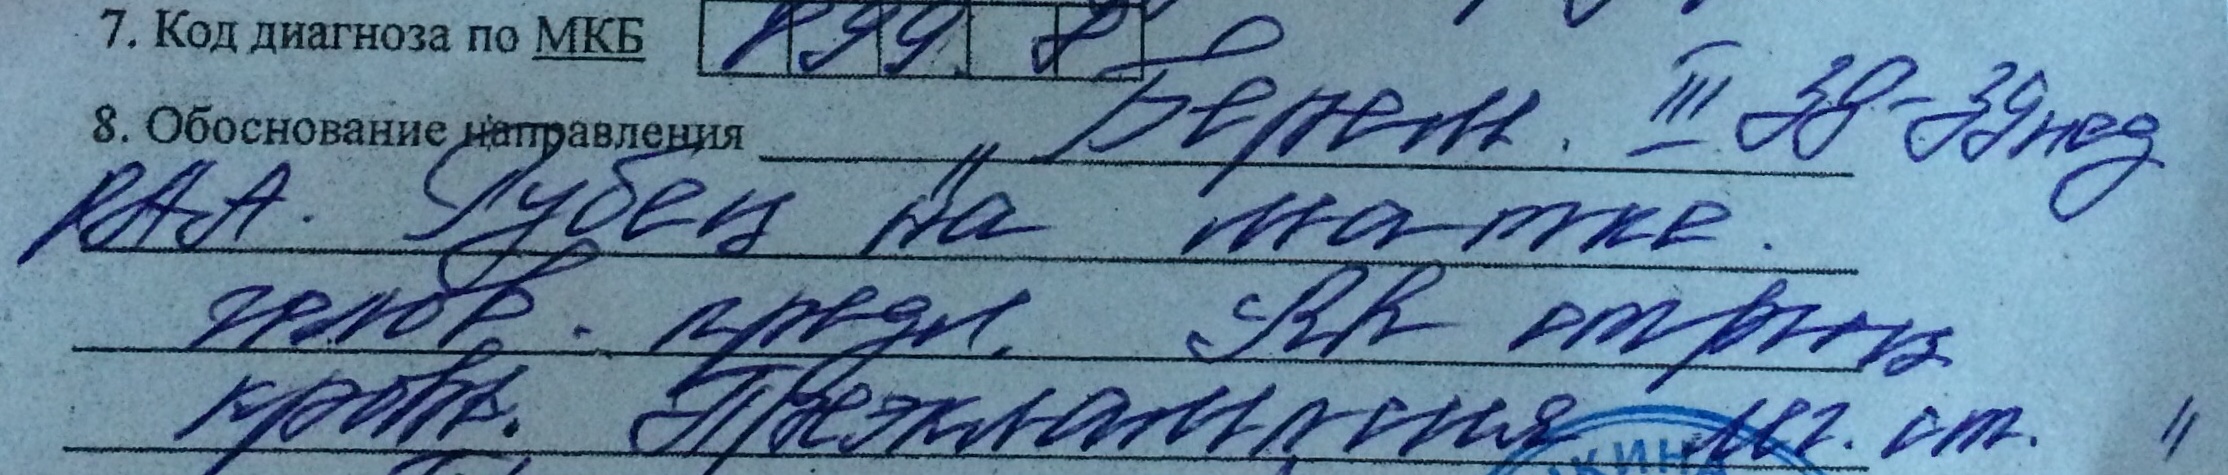 7. Код диагноза по МКБ
8. Обоснование направления Берем. III 38-39 нед
Рубец на матке.
голов. предл. Rh отриц
кровь. Преэклампсия лег. ст.